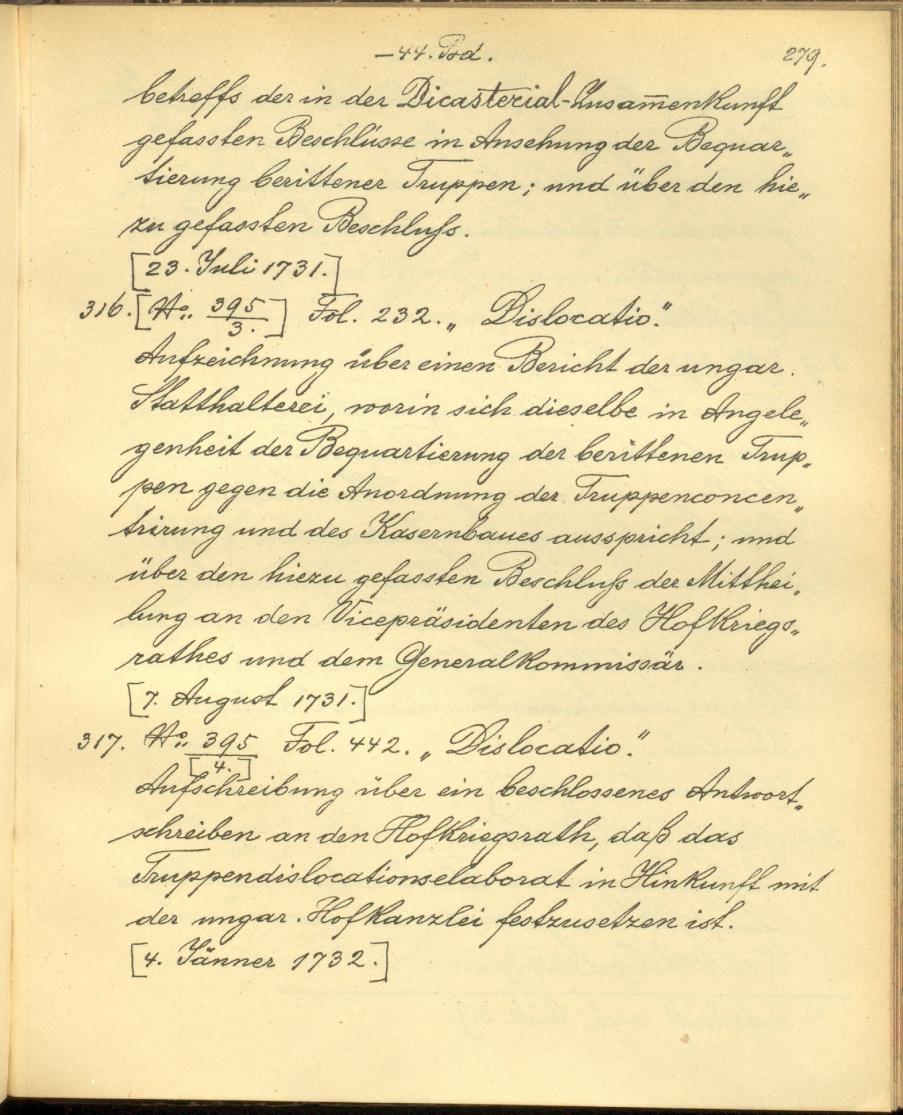 —44. Pod. 279.
betreffs der in der Dicasterial-Zusam̄enkunft
gefassten Beschlüsse in Ansehung der Bequar„
tierung berittener Truppen; und über den hie„
zu gefassten Beschluſs.
[23. Juli 1731.]
316. [No. 395/3.] Fol. 232. „Dislocatio.“
Aufzeichnung über einen Bericht der ungar.
Statthalterei, worin sich dieselbe in Angele„
genheit der Bequartierung der berittenen Trup„
pen gegen die Anordnung der Truppenconcen„
trirung und des Kasernbaues ausspricht; und
über den hiezu gefassten Beschluſs der Mitthei„
lung an den Vicepräsidenten des Hofkriegs„
rathes und dem Generalkommissär.
[7. August 1731.]
317. No. 395/[4.] Fol. 442. „Dislocatio.“
Aufschreibung über ein beschlossenes Antwort„
schreiben an den Hofkriegsrath, daß das
Truppendislocationselaborat in Hinkunft mit
der ungar. Hofkanzlei festzusetzen ist.
[4. Jänner 1732.]